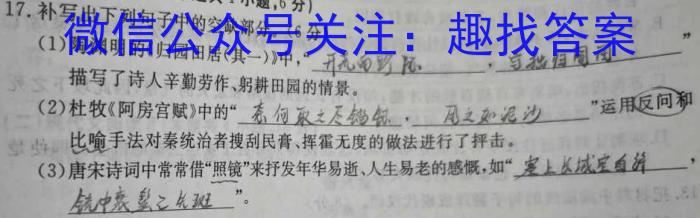 17.补写出下列句子中的空缺部分。(6分)
微信公众号关注：趣找答案
(1)陶渊明的《归园田居(其一)》中，“开荒南野际，守拙归园田”
描写了诗人辛勤劳作，躬耕田园的情景。
(2)杜牧《阿房宫赋》中的“奈何取之尽锱铢，用之如泥沙”运用反问和
比喻手法对秦统治者搜刮民膏、挥霍无度的做法进行了抨击。
(3)唐宋诗词中常常借“照镜”来抒发年华易逝、人生易老的感慨，如“塞上长城空自许，
镜中衰鬓已先斑”。